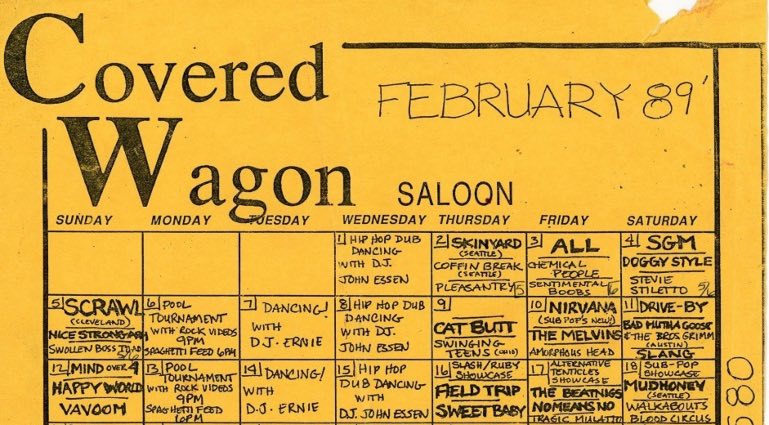 Covered
FEBRUARY 89'
Wagon
SALOON
SUNDAY MONDAY TUESDAY WEDNESDAY THURSDAY FRIDAY SATURDAY
1 HIP HOP DUB
DANCING
WITH D.J.
JOHN ESSEN
2 SKINYARD
(SEATTLE)
COFFIN BREAK
(SEATTLE)
PLEASANTRY 5
3 ALL
CHEMICAL
PEOPLE
SENTIMENTAL
BOOBS 6
4 SGM
DOGGY STYLE
STEVIE
STILETTO 5/6
5 SCRAWL
(CLEVELAND)
NICE STRONG ARM
SWOLLEN BOSS TOAD
6 POOL
TOURNAMENT
WITH ROCK VIDEOS
9PM
SPAGHETTI FEED 6PM
7 DANCING!
WITH
D.J. ERNIE
8 HIP HOP DUB
DANCING
WITH DJ.
JOHN ESSEN
9
CAT BUTT
SWINGING
TEENS (OHIO)
10 NIRVANA
(SUB POP'S NEW)
THE MELVINS
AMORPHOUS HEAD
11 DRIVE-BY
BAD MUTHA GOOSE
& THE BROS GRIMM
(AUSTIN)
SLANG
12 MIND OVER 4
HAPPY WORLD
VAVOOM
13 POOL
TOURNAMENT
WITH ROCK VIDEOS
9PM
SPAGHETTI FEED
6PM
14 DANCING/
WITH
D.J. ERNIE
15 HIP HOP
DUB DANCING
WITH
D.J. JOHN ESSEN
16 SLASH/RUBY
SHOWCASE
FIELD TRIP
SWEET BABY
17 ALTERNATIVE
TENTACLES
SHOWCASE
THE BEATNIGS
NOMEANSNO
TRAGIC MULATTO
18 SUB-POP
SHOWCASE
MUDHONEY
(SEATTLE)
WALKABOUTS
BLOOD CIRCUS